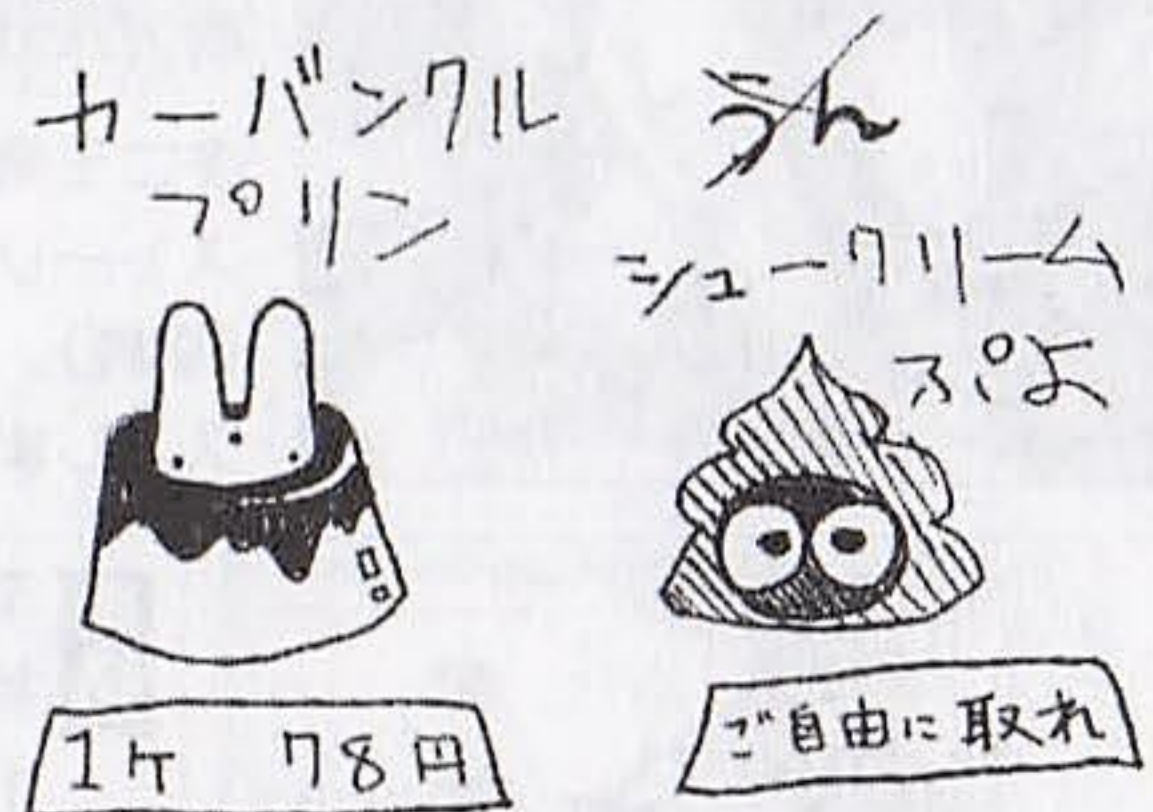 カーバンクル
プリン
1ケ 78円
うん
シュークリーム
ぷよ
ご自由に取れ